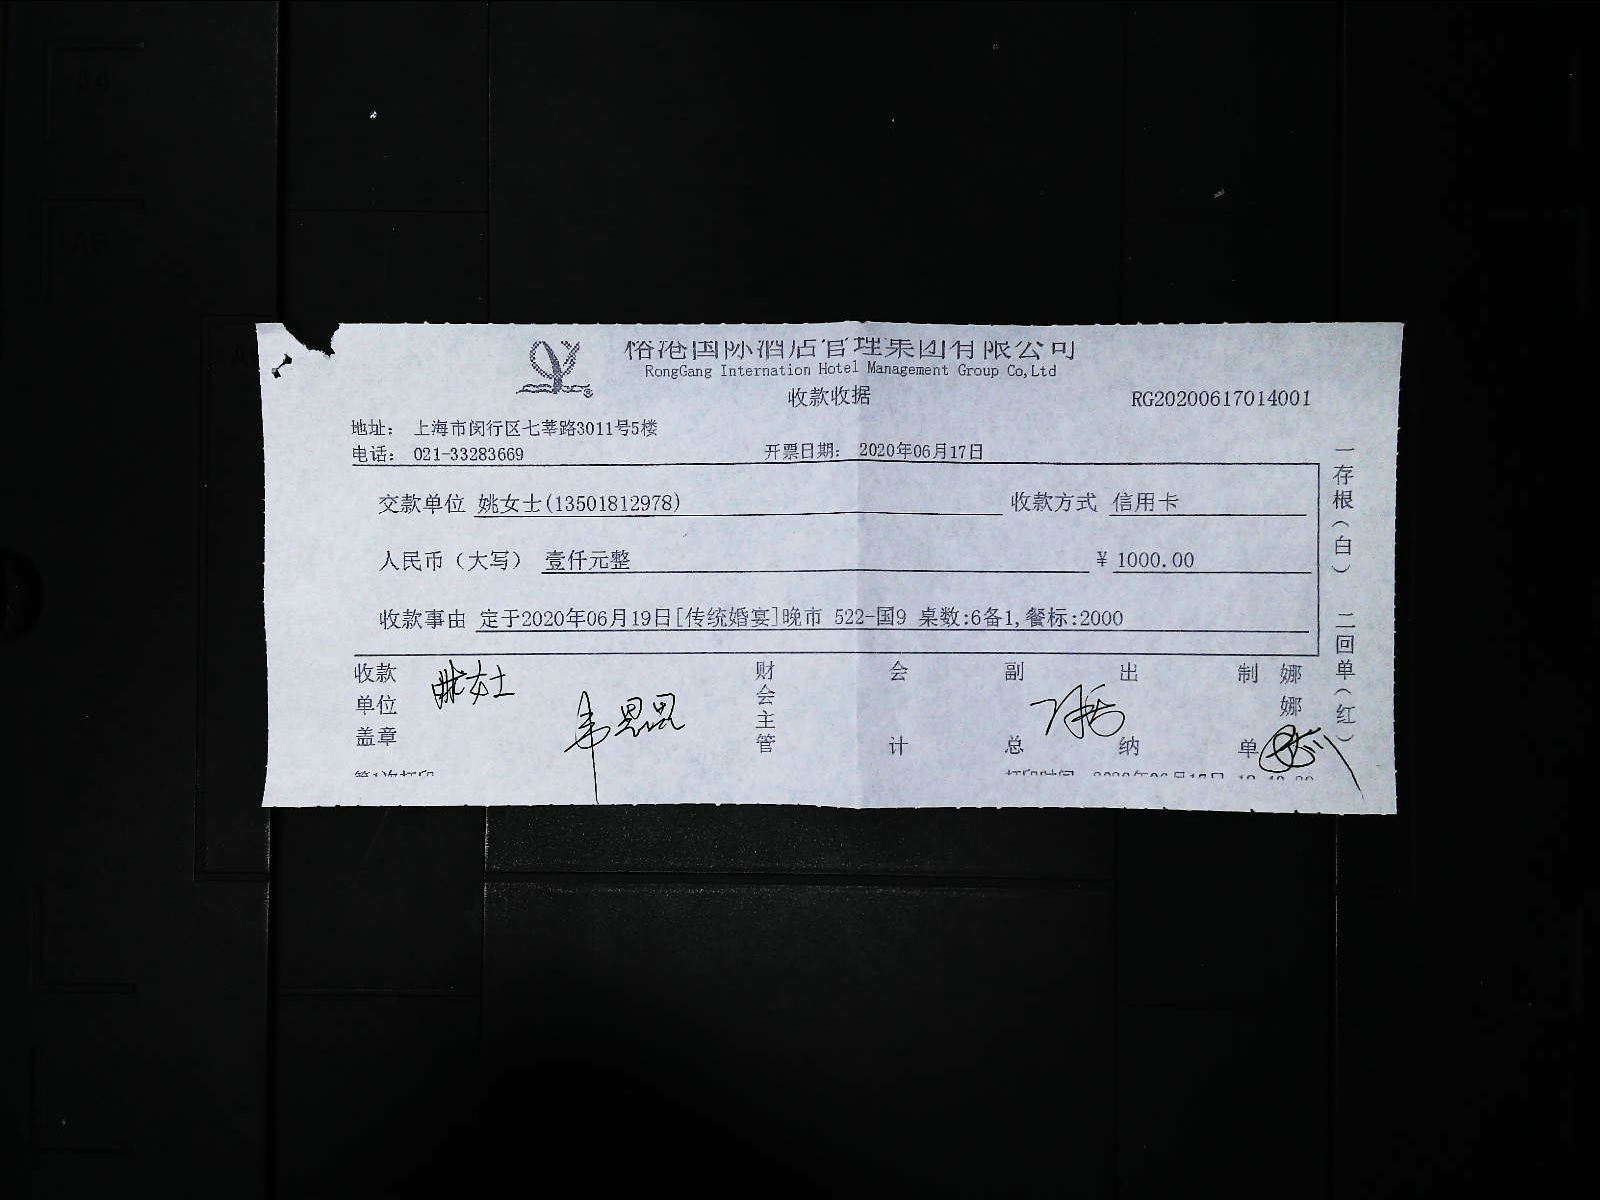 榕港国际酒店管理集团有限公司
RongGang Internation Hotel Management Group Co,Ltd
收款收据 RG20200617014001
地址： 上海市闵行区七莘路3011号5楼
电话： 021-33283669 开票日期： 2020年06月17日
交款单位 姚女士(13501812978) 收款方式 信用卡
人民币（大写） 壹仟元整 ¥ 1000.00
收款事由 定于2020年06月19日[传统婚宴]晚市 522-国9 桌数:6备1,餐标:2000
收款单位盖章 姚女士 财会主管 会计 副总 出纳 制单 娜娜
第1次打印 打印时间 2020年06月17日
一存根（白） 二回单（红）